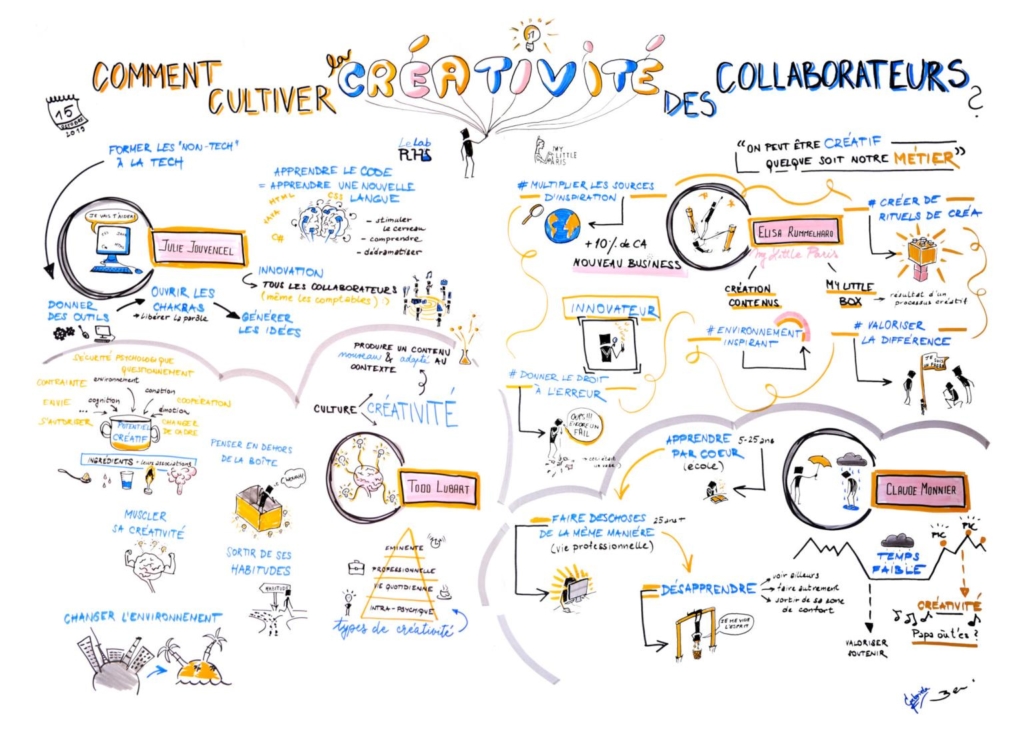 COMMENT
CULTIVER
la
CRÉATIVITÉ
DES
COLLABORATEURS
?
15
2019
FORMER LES "NON-TECH"
À LA TECH
JE VAIS T'AIDER
JULIE JOUVENCEL
DONNER
DES OUTILS
OUVRIR LES
CHAKRAS
→ Libérer la parole
GÉNÉRER
LES IDÉES
Le Lab
RH
APPRENDRE LE CODE
= APPRENDRE UNE NOUVELLE
LANGUE
HTML
CSS
JAVA
C#
- stimuler
le cerveau
- comprendre
- dédramatiser
INNOVATION
TOUS LES COLLABORATEURS
(même les comptables)
MY
LITTLE
PARIS
"ON PEUT ÊTRE CRÉATIF
QUELQUE SOIT NOTRE MÉTIER"
# MULTIPLIER LES SOURCES
D'INSPIRATION
+10% de CA
NOUVEAU BUSINESS
ELISA RUMMELHARD
my Little Paris
CRÉATION
CONTENUS
MY LITTLE
BOX
→ résultat d'un
processus créatif
# CRÉER DE
RITUELS DE CRÉA
INNOVATEUR
# ENVIRONNEMENT
INSPIRANT
# VALORISER
LA DIFFÉRENCE
# DONNER LE DROIT
À L'ERREUR
OUPS!!!
FAIL
SÉCURITÉ PSYCHOLOGIQUE
QUESTIONNEMENT
CONTRAINTE
environnement
conation
ENVIE
cognition
COOPÉRATION
...
émotion
S'AUTORISER
CHANGER
DE CADRE
POTENTIEL
CRÉATIF
INGRÉDIENTS + leurs associations
MUSCLER
SA CRÉATIVITÉ
CHANGER L'ENVIRONNEMENT
PENSER EN DEHORS
DE LA BOÎTE
SORTIR DE SES
HABITUDES
PRODUIRE UN CONTENU
nouveau & adapté AU
CONTEXTE
CULTURE
CRÉATIVITÉ
TODD LUBART
EMINENTE
PROFESSIONNELLE
VIE QUOTIDIENNE
INTRA-PSYCHIQUE
types de créativité
APPRENDRE
PAR COEUR
(école)
5-25 ans
FAIRE DES CHOSES
DE LA MÊME MANIÈRE
(vie professionnelle)
25 ans+
DÉSAPPRENDRE
→ voir ailleurs
→ faire autrement
→ sortir de sa zone
de confort
JE ME VIDE
L'ESPRIT
CLAUDE MONNIER
PIC
PIC
TEMPS
FAIBLE
VALORISER
SOUTENIR
CRÉATIVITÉ
Papa où t'es ?